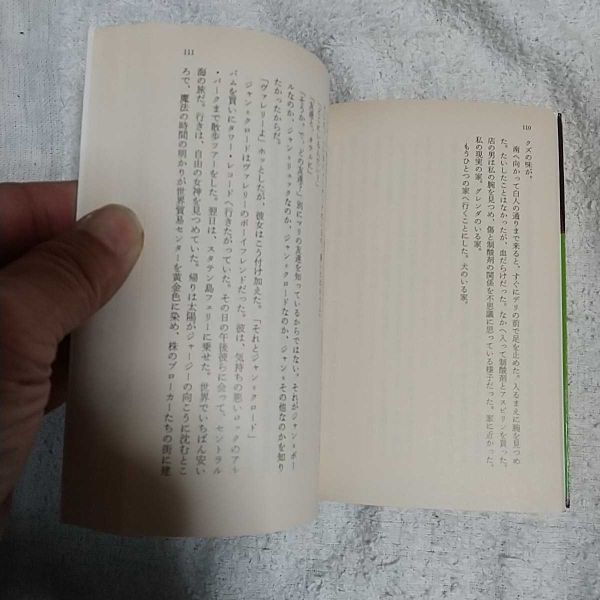 110
クズの味が、
南へ向かって白人の通りまで来ると、すぐにデリの前で足を止めた。入るまえに腕を見つめ
た。たいしたことはなかったが、血だらけだった。なかへ入って制酸剤とアスピリンを買った。
店の男は私の腕を見つめ、傷と制酸剤の関係を不思議に思っている様子だった。家に近かった。
私の現実の家。グレンダのいる家。
もうひとつの家へ行くことにした。犬のいる家。
111
「そうか。で、どの友達？」別にマリの友達を知っているからではない。それがジャン＝ポー
ルなのか、ジャン＝リュックなのか、ジャン＝クロードなのか、ジャン＝その他なのかを知り
たかったからだ。
「ヴァレリーよ」ホッとしたが、彼女はこう付け加えた。「それとジャン＝クロード」
ジャン＝クロードはヴァレリーのボーイフレンドだった。彼は、気持ちの悪いロックのアル
バムを買いにタワー・レコードへ行きたがっていた。その日の午後彼らに会って、セントラル
・パークまで散歩ツアーをした。翌日は、スタテン島フェリーに乗せた。世界でいちばん安い
海の旅だ。行きは、自由の女神を見つめていた。帰りは太陽がジャージーの向こうに沈むとこ
ろで、魔法の時間の明かりが世界貿易センターを黄金色に染め、株のブローカーたちの街に建